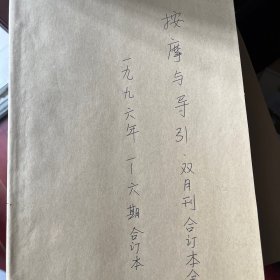 按摩与导引 双月刊合订本全
一九九六年 一-六期合订本